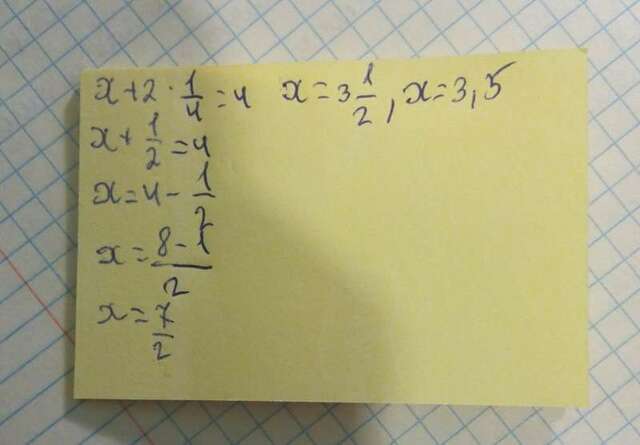 x+2·1/4=4 x=3 1/2, x=3,5
x+1/2=4
x=4-1/2
x=8-1/2
x=7/2